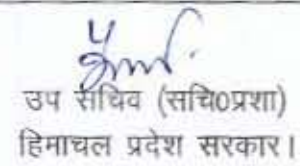 उप सचिव (सचि0प्रशा)
हिमाचल प्रदेश सरकार।